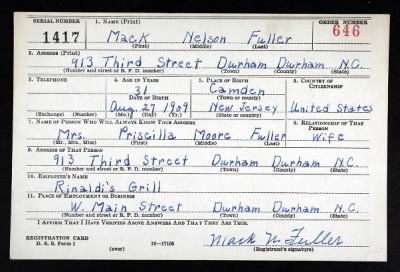 SERIAL NUMBER 1. NAME (Print) ORDER NUMBER
1417 Mack Nelson Fuller 646
(First) (Middle) (Last)
2. ADDRESS (Print)
913 Third Street Durham Durham N.C.
(Number and street or R. F. D. number) (Town) (County) (State)
3. TELEPHONE 4. AGE IN YEARS 5. PLACE OF BIRTH 6. COUNTRY OF CITIZENSHIP
31 Camden
DATE OF BIRTH (Town or county)
Aug. 27 1909 New Jersey United States
(Exchange) (No.) (Mo.) (Day) (Yr.) (State or country)
7. NAME OF PERSON WHO WILL ALWAYS KNOW YOUR ADDRESS 8. RELATIONSHIP OF THAT PERSON
Mrs. Priscilla Moore Fuller Wife
(Mr., Mrs., Miss) (First) (Middle) (Last)
9. ADDRESS OF THAT PERSON
913 Third Street Durham Durham N.C.
(Number and street or R. F. D. number) (Town) (County) (State)
10. EMPLOYER'S NAME
Rinaldi's Grill
11. PLACE OF EMPLOYMENT OR BUSINESS
W. Main Street Durham Durham N.C.
(Number and street or R. F. D. number) (Town) (County) (State)
I AFFIRM THAT I HAVE VERIFIED ABOVE ANSWERS AND THAT THEY ARE TRUE.
REGISTRATION CARD
D. S. S. Form 1 (over) 16—17105 Mack N. Fuller
(Registrant's signature)